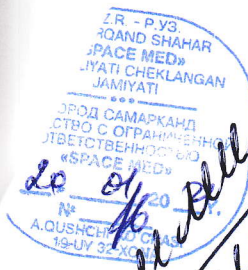 Z.R. - Р.УЗ.
RQAND SHAHAR
SPACE MED»
IYATI CHEKLANGAN
JAMIYATI
ОРОД САМАРКАНД
СТВО С ОГРАНИЧЕННО
ТВЕТСТВЕННОСТЬЮ
«SPACE MED»
20 01 20
№ 16
A.QUSHCH
19-UY 32-XON